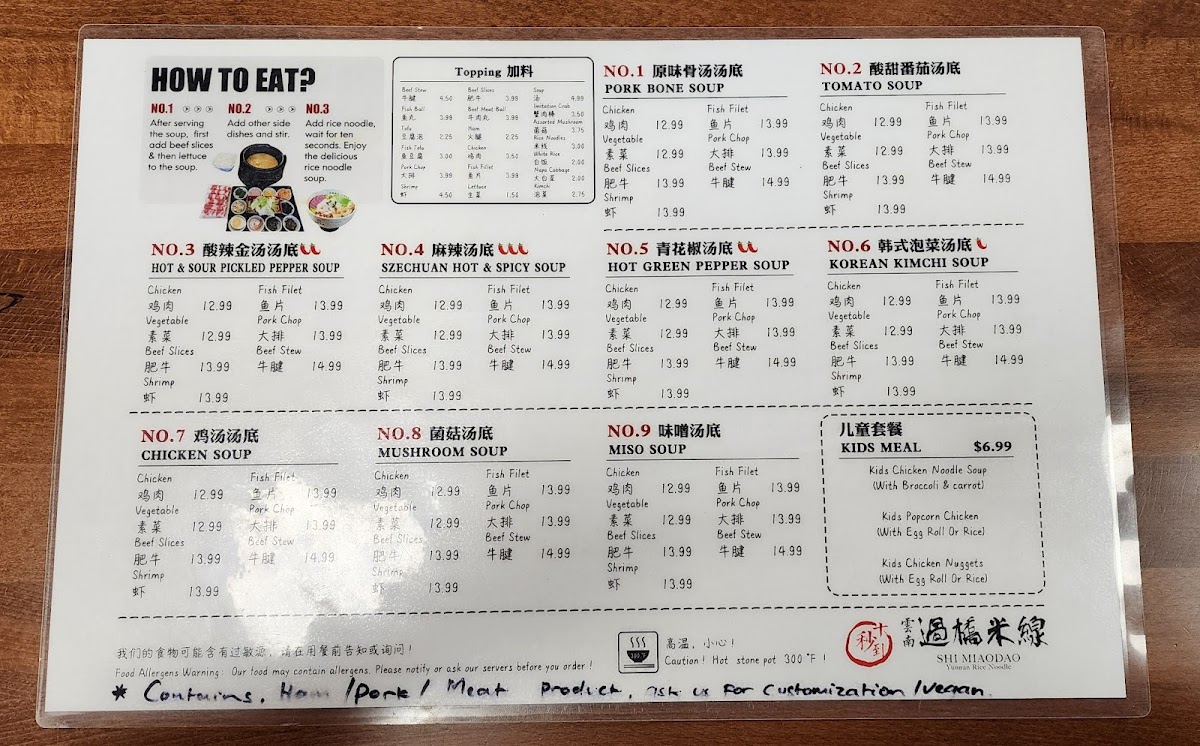 HOW TO EAT?
NO.1 NO.2 NO.3
After serving
the soup, first
add beef slices
& then lettuce
to the soup.
Add other side
dishes and stir.
Add rice noodle,
wait for ten
seconds. Enjoy
the delicious
rice noodle
soup.
Topping 加料
Beef Stew
牛腱 4.50
Fish Ball
鱼丸 3.99
Tofu
豆腐泡 2.25
Fish Tofu
鱼豆腐 3.00
Pork Chop
大排 3.99
Shrimp
虾 4.50
Beef Slices
肥牛 3.99
Beef Meat Ball
牛肉丸 3.99
Ham
火腿 2.25
Chicken
鸡肉 3.50
Fish Fillet
鱼片 3.99
Lettuce
生菜 1.50
Soup
汤 4.99
Imitation Crab
蟹肉棒 3.50
Assorted Mushroom
菌菇 3.75
Rice Noodles
米线 3.00
White Rice
白饭 2.00
Napa Cabbage
大白菜 2.00
Kimchi
泡菜 2.75
NO.1 原味骨汤汤底
PORK BONE SOUP
Chicken Fish Filet
鸡肉 12.99 鱼片 13.99
Vegetable Pork Chop
素菜 12.99 大排 13.99
Beef Slices Beef Stew
肥牛 13.99 牛腱 14.99
Shrimp
虾 13.99
NO.2 酸甜番茄汤底
TOMATO SOUP
Chicken Fish Filet
鸡肉 12.99 鱼片 13.99
Vegetable Pork Chop
素菜 12.99 大排 13.99
Beef Slices Beef Stew
肥牛 13.99 牛腱 14.99
Shrimp
虾 13.99
NO.3 酸辣金汤汤底
HOT & SOUR PICKLED PEPPER SOUP
Chicken Fish Filet
鸡肉 12.99 鱼片 13.99
Vegetable Pork Chop
素菜 12.99 大排 13.99
Beef Slices Beef Stew
肥牛 13.99 牛腱 14.99
Shrimp
虾 13.99
NO.4 麻辣汤底
SZECHUAN HOT & SPICY SOUP
Chicken Fish Filet
鸡肉 12.99 鱼片 13.99
Vegetable Pork Chop
素菜 12.99 大排 13.99
Beef Slices Beef Stew
肥牛 13.99 牛腱 14.99
Shrimp
虾 13.99
NO.5 青花椒汤底
HOT GREEN PEPPER SOUP
Chicken Fish Filet
鸡肉 12.99 鱼片 13.99
Vegetable Pork Chop
素菜 12.99 大排 13.99
Beef Slices Beef Stew
肥牛 13.99 牛腱 14.99
Shrimp
虾 13.99
NO.6 韩式泡菜汤底
KOREAN KIMCHI SOUP
Chicken Fish Filet
鸡肉 12.99 鱼片 13.99
Vegetable Pork Chop
素菜 12.99 大排 13.99
Beef Slices Beef Stew
肥牛 13.99 牛腱 14.99
Shrimp
虾 13.99
NO.7 鸡汤汤底
CHICKEN SOUP
Chicken Fish Filet
鸡肉 12.99 鱼片 13.99
Vegetable Pork Chop
素菜 12.99 大排 13.99
Beef Slices Beef Stew
肥牛 13.99 牛腱 14.99
Shrimp
虾 13.99
NO.8 菌菇汤底
MUSHROOM SOUP
Chicken Fish Filet
鸡肉 12.99 鱼片 13.99
Vegetable Pork Chop
素菜 12.99 大排 13.99
Beef Slices Beef Stew
肥牛 13.99 牛腱 14.99
Shrimp
虾 13.99
NO.9 味噌汤底
MISO SOUP
Chicken Fish Filet
鸡肉 12.99 鱼片 13.99
Vegetable Pork Chop
素菜 12.99 大排 13.99
Beef Slices Beef Stew
肥牛 13.99 牛腱 14.99
Shrimp
虾 13.99
儿童套餐
KIDS MEAL $6.99
Kids Chicken Noodle Soup
(With Broccoli & carrot)
Kids Popcorn Chicken
(With Egg Roll Or Rice)
Kids Chicken Nuggets
(With Egg Roll Or Rice)
我们的食物可能含有过敏源，请在用餐前告知或询问！
Food Allergens Warning: Our food may contain allergens. Please notify or ask our servers before you order!
300°F
高温，小心！
Caution! Hot stone pot 300°F!
十秒到
雲南 過橋米線
SHI MIAODAO
Yunnan Rice Noodle
* Contains, Ham /pork/ Meat product, ask us for customization /vegan.